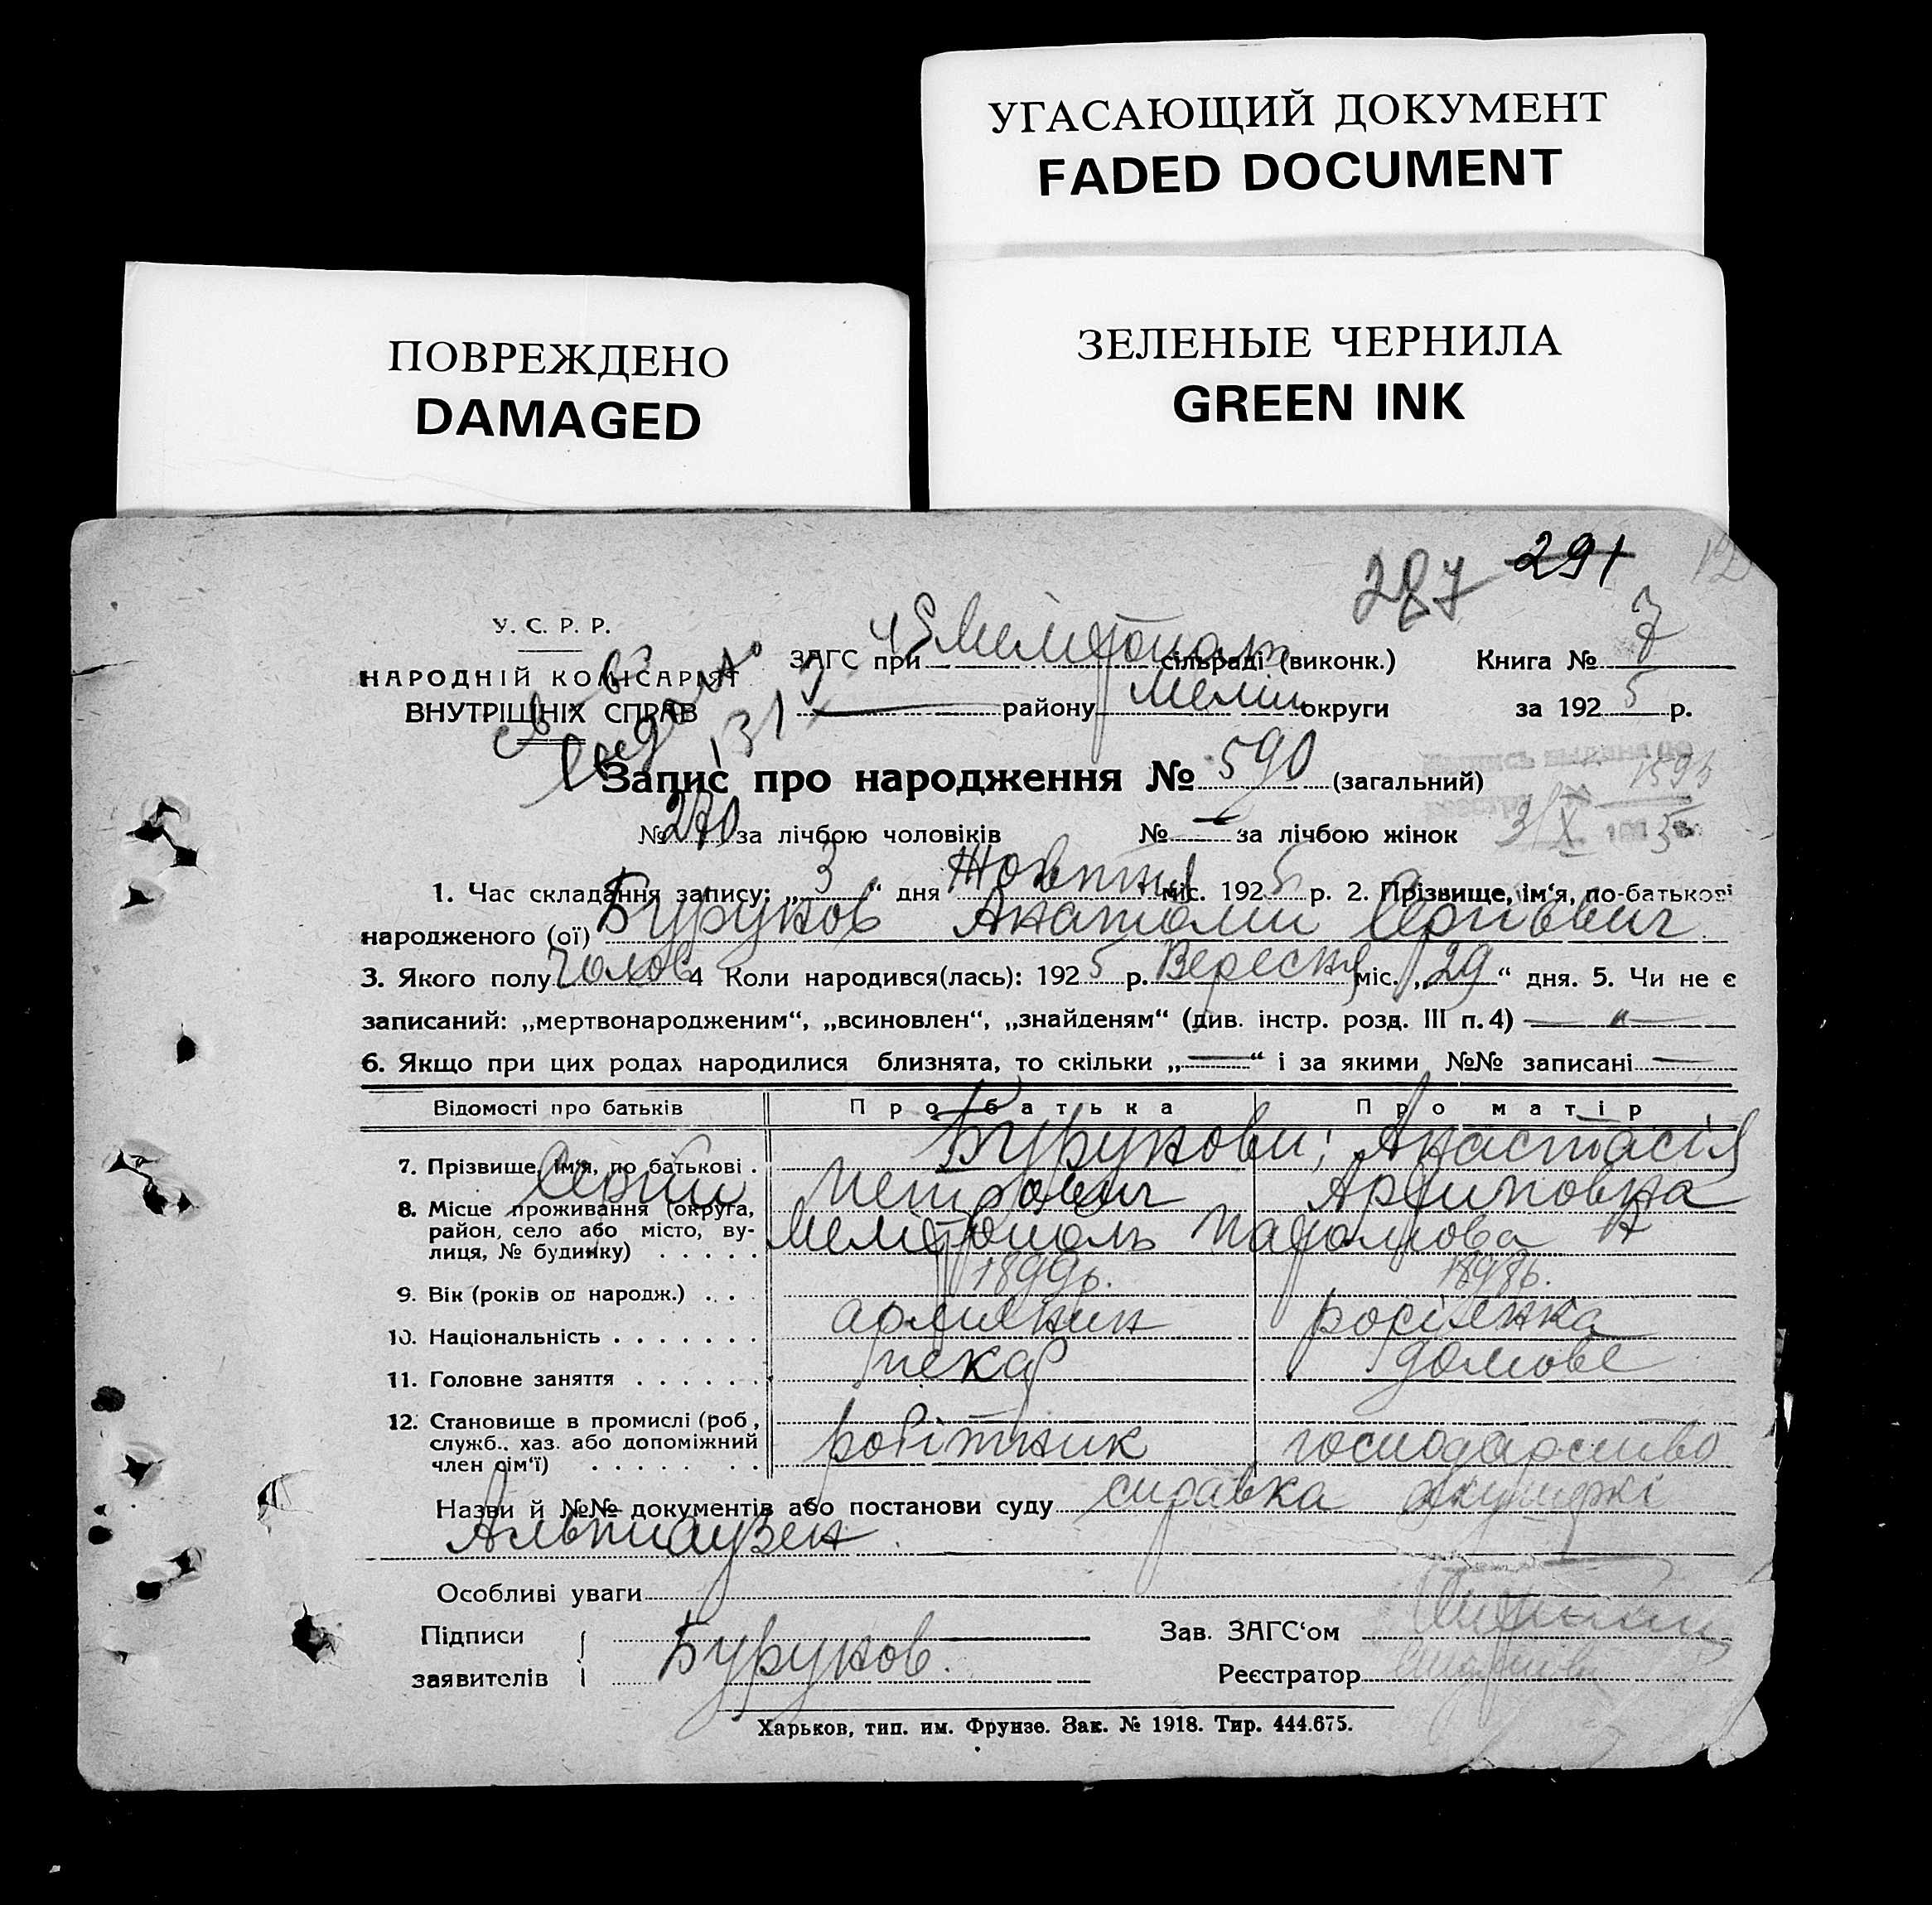 УГАСАЮЩИЙ ДОКУМЕНТ
FADED DOCUMENT
ПОВРЕЖДЕНО
DAMAGED
ЗЕЛЕНЫЕ ЧЕРНИЛА
GREEN INK
287 291
У. С. Р. Р.
НАРОДНІЙ КОМІСАРІЯТ
ВНУТРІШНІХ СПРАВ
ЗАГС при Мелітополь сільраді (виконк.) Книга № 7
району Меліт округи за 1925 р.
Запис про народження № 590 (загальний)
№ 270 за лічбою чоловіків № — за лічбою жінок
1. Час складання запису: „3“ дня Жовтня міс. 1925 р. 2. Прізвище, ім‘я, по-батькові
народженого (ої) Бурунов Анатолий Сергієвич
3. Якого полу Чолов 4 Коли народився(лась): 1925 р. Вересня міс. „29“ дня. 5. Чи не є
записаний: „мертвонародженим“, „всиновлен“, „знайденям“ (див. інстр. розд. III п. 4) — „ —
6. Якщо при цих родах народилися близнята, то скільки „—“ і за якими №№ записані —
Відомості про батьків Про батька Про матір
7. Прізвище, ім‘я, по батькові . Бурунови; Анастасія
Сергій Петрович
8. Місце проживання (округа,
район, село або місто, ву-
лиця, № будинку) . . . . . Мелітополь
9. Вік (років од народж.) . . . 1899р. 1898р.
10. Національність . . . . . . . армянин росіянка
11. Головне заняття . . . . . . пекар домове
12. Становище в промислі (роб.,
служб., хаз. або допоміжний
член сім‘ї) . . . . . . . робітник господарство
Назви й №№ документів або постанови суду справка акушеркі
Альтгаузен
Особливі уваги
Підписи
заявителів Бурунов.
Зав. ЗАГС‘ом
Реєстратор
Харьков, тип. им. Фрунзе. Зак. № 1918. Тир. 444.675.